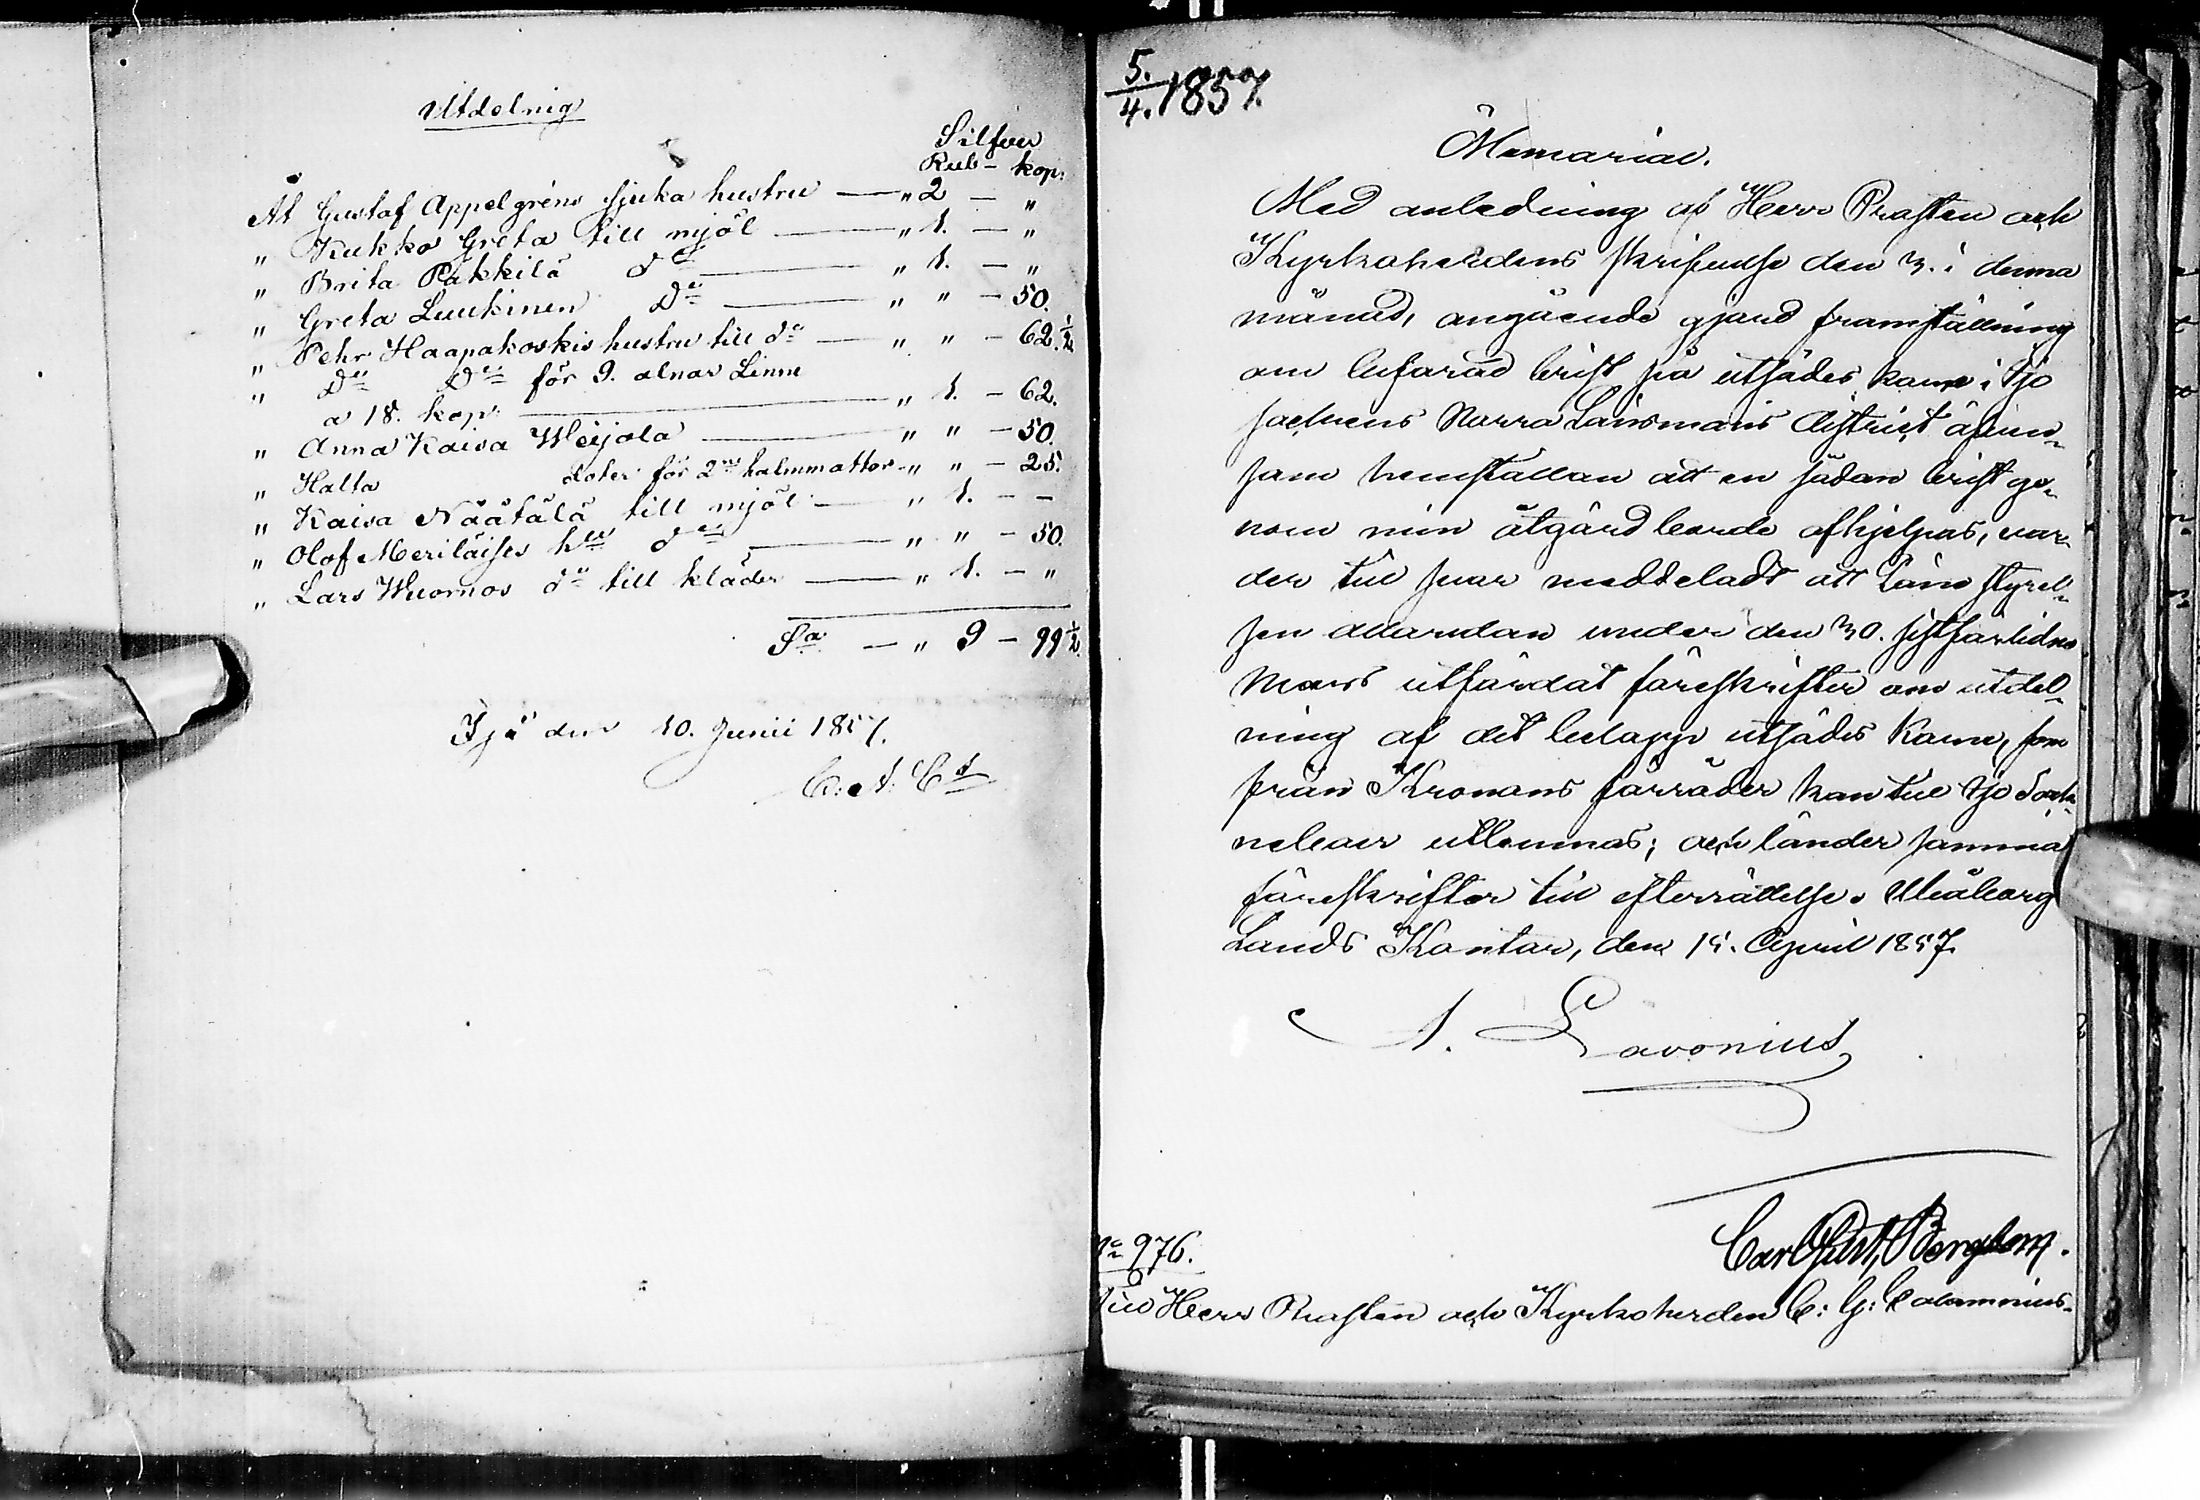 Utdelnig
Silfver
Rub - kop:
At Gustaf Appelgréns sjuka hustru — " 2 — "
" Kukko Greta till mjöl — " 1. — "
" Brita Pakkilä do — " 1. — "
" Greta Luukinen Do — " " — 50.
" Pehr Haapakoskis hustru till do — " " — 62.½
" Do Do för 9. alnar Linne
a 18. kop: — " 1. — 62.
" Anna Kaisa Weijola — " " — 50.
" Halta doter för 2ne halmmattor — " " — 25.
" Kaisa Näätälä till mjöl — " 1. — -
" Olof Meriläises hu do — " " — 50.
" Lars Wuornos do till kläder — " 1. — "
Sa — " 9 — 99½.
Ijo den 10. Junii 1857.
C: A: Cs
5./4. 1857.
Memorial.
Med anledning af Herr Prosten och
Kyrkoherdens skrifvelse den 3. i denna
månad, angående gjord framställning
om befarad brist på utsädes korn i Ijo
sochnens Norra Länsmans district äfven-
som hemställan att en sådan brist ge-
nom min åtgärd borde afhjelpas, var-
der till svar meddeladt att Läns styrel-
sen allaredan under den 30. sistförlidne
Mars utfärdat föreskrifter om utdel-
ning af det belopp utsädes korn, som
från Kronans förråder kan till Ijo Sock-
neboer utlemnas; och länder samma
föreskrifter till efterrättelse. Uleåborgs
Lands Kontor, den 15. April 1857.
A. Lavonius
Carl Gust. Bergbom.
No 976.
Till Herr Prosten och Kyrkoherden C: G: Calamnius.